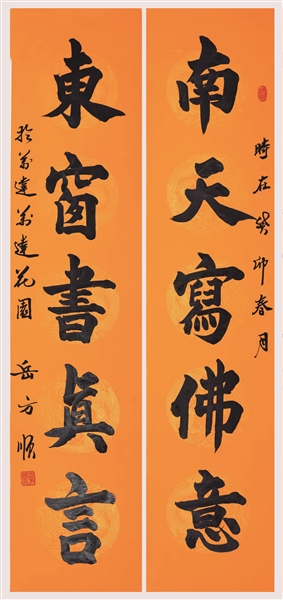 南天寫佛意
時在癸卯春月
東窗書真言
於萬達萬達花園
岳方順